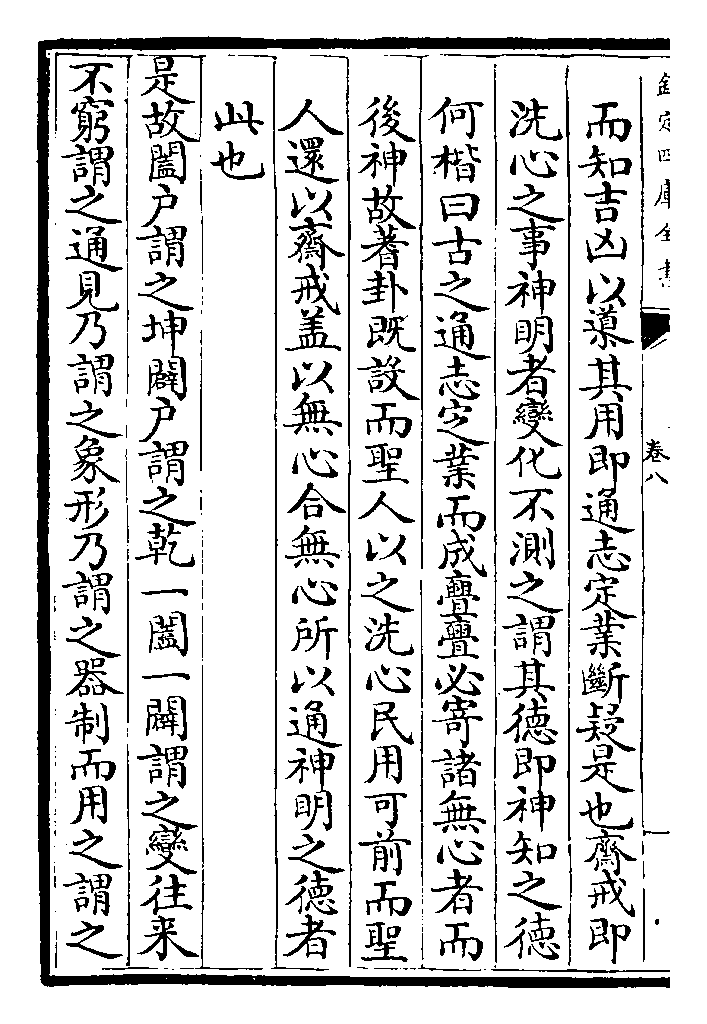 欽定四庫全書
卷八
而知吉凶以導其用即通志定業斷疑是也齋戒即
洗心之事神明者變化不測之謂其德即神知之德
何楷曰古之通志定業而成亹亹必寄諸無心者而
後神故蓍卦既設而聖人以之洗心民用可前而聖
人還以齋戒盖以無心合無心所以通神明之德者
此也
是故闔户謂之坤闢户謂之乾一闔一闢謂之變往来
不窮謂之通見乃謂之象形乃謂之器制而用之謂之